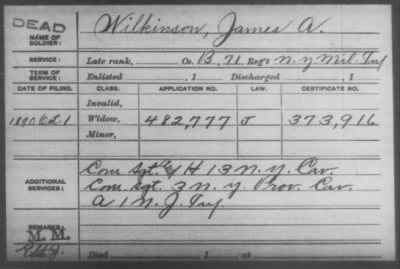 DEAD
NAME OF SOLDIER: Wilkinson, James A.
SERVICE: Late rank, Co. B, 71 Reg't N.Y. Mil. Inf
TERM OF SERVICE: Enlisted , 1 Discharged , 1
DATE OF FILING. CLASS. APPLICATION NO. LAW. CERTIFICATE NO.
Invalid,
1890 Oct-1 Widow, 482,777 J 373,916
Minor,
ADDITIONAL SERVICES: Com Sgt. H 13 N.Y. Cav.
Com. Sgt. 3 N.Y. Prov. Cav.
A 1 N.J. Inf
REMARKS:
M. M.
Died , 1 at